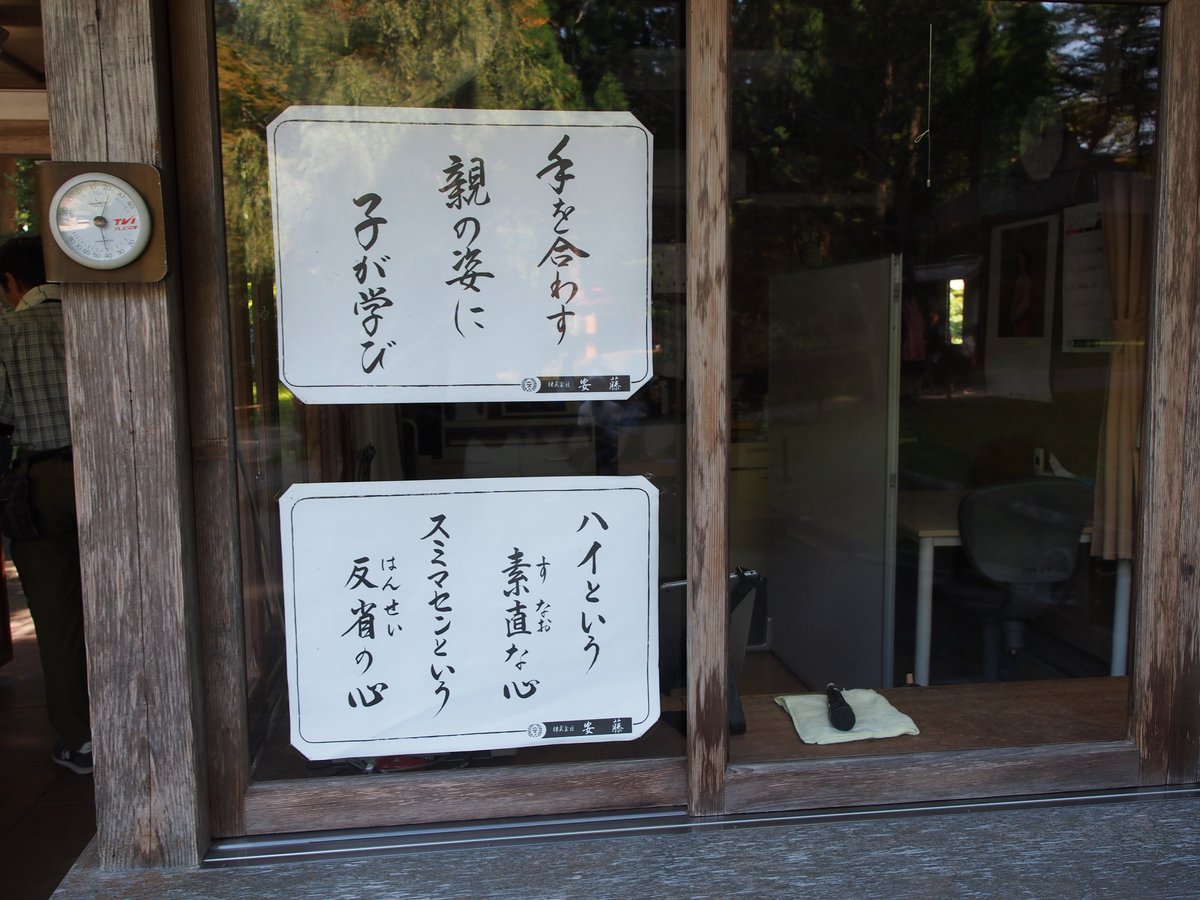 手を合わす
親の姿に
子が学び
株式会社 安藤
ハイという
素直な心
すなお
スミマセンという
反省の心
はんせい
株式会社 安藤
TVi